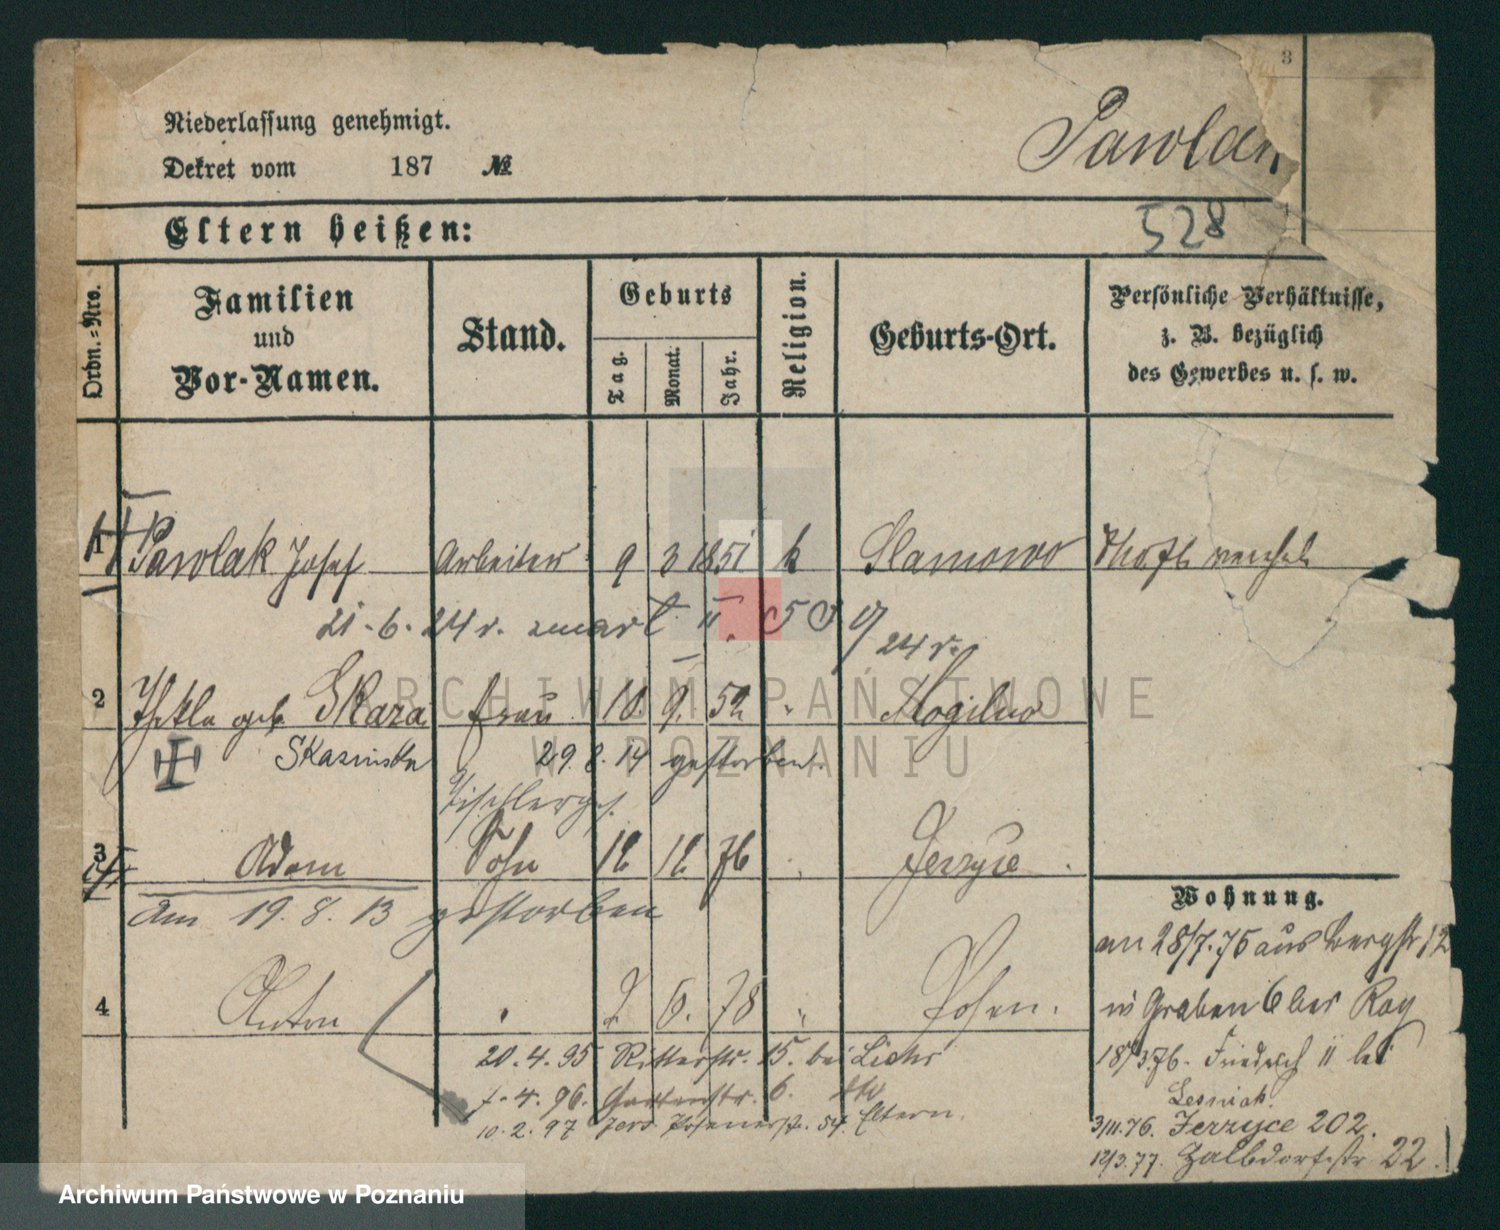 3
Niederlassung genehmigt.
Dekret vom 187 №
Pawlak
528
Eltern heißen:
Ordn.=Nro.
Familien und Vor-Namen.
Stand.
Geburts
Tag. Monat. Jahr.
Religion.
Geburts-Ort.
Persönliche Verhältnisse,
z. B. bezüglich
des Gewerbes u. s. w.
1 Pawlak Josef Arbeiter 9 3 1851 k Slamowo
21.6.24 r. zmarł II. 50 9/24 r.
2 Thekla geb Skara Frau 18 9. 52 " Mogilno
Skazinska 29.8.14 gestorben.
Tischlerges.
3 Adam Sohn 12 12 76 Jerzyce.
am 19.8.13 gestorben
4 Anton " 2 6. 78 " Posen.
20.4.95 Ritterstr. 15. bei Lichs
1.4.96. Gartenstr. 6.
10.2.97 Jers. Posenerstr. 54. Eltern.
Wohnung.
am 28/7.75 aus Bergstr 12
in Graben 6 bei Roy
18/3.76. Friedrich 11 bei
Lesniak.
3/11.76. Jerzyce 202.
12/3.77. 22.
ARCHIWUM PAŃSTWOWE
W POZNANIU
Archiwum Państwowe w Poznaniu